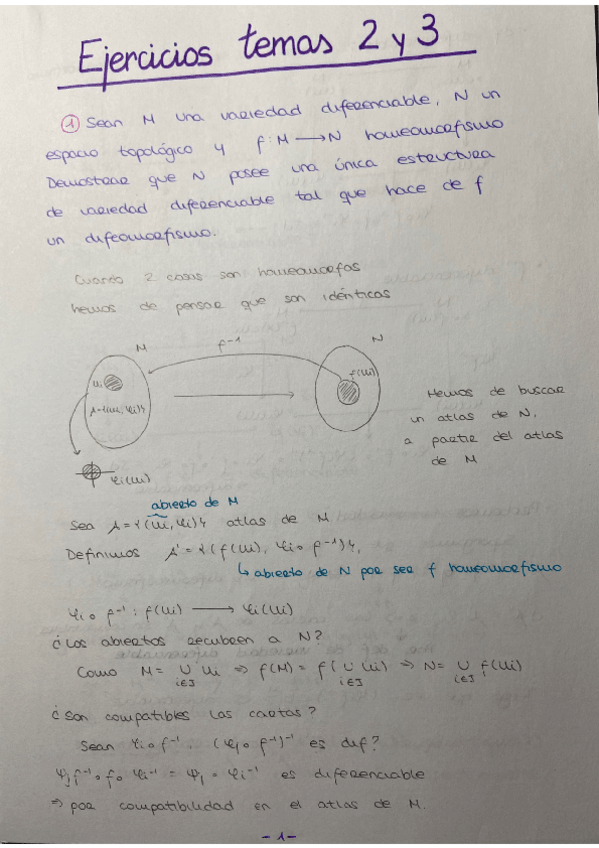 Ejercicios temas 2 y 3
① Sean M una variedad diferenciable, N un
espacio topológico y f: M ⟶ N homeomorfismo
Demostrar que N posee una única estructura
de variedad diferenciable tal que hace de f
un difeomorfismo.
Cuando 2 cosas son homeomorfas
hemos de pensar que son idénticas
M f⁻¹ N
Ui f(Ui)
A={(Ui, φi)}
φi(Ui)
Hemos de buscar
un atlas de N,
a partir del atlas
de M
abierto de M
Sea A={(Ui, φi)} atlas de M
Definimos A'={(f(Ui), φi∘f⁻¹)},
↳ abierto de N por ser f homeomorfismo
φi∘f⁻¹: f(Ui) ⟶ φi(Ui)
¿Los abiertos recubren a N?
Como M= ∪ Ui ⇒ f(M) = f(∪ Ui) ⇒ N= ∪ f(Ui)
i∈I i∈I i∈I
¿Son compatibles las cartas?
Sean φi∘f⁻¹. (φj∘f⁻¹)⁻¹ es dif?
φj∘f⁻¹∘f∘φi⁻¹ = φj∘φi⁻¹ es diferenciable
⇒ por compatibilidad en el atlas de M.
-1-